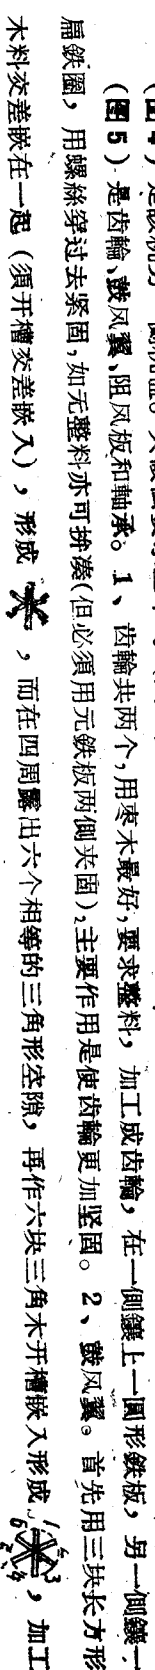 （图5）是齿輪、鼓风翼、阻风板和軸承。1、齿輪共两个，用枣木最好，要求整料，加工成齿輪，在一側鑲上一圆形鉄板，另一側鑲一
扁鉄圈，用螺絲穿过去紧固，如无整料亦可拚凑（但必須用元鉄板两侧夹固），主要作用是使齿輪更加坚固。2、鼓风翼。首先用三块长方形
木料交差嵌在一起（須开槽交差嵌入），形成，而在四周露出六个相等的三角形空隙，再作六块三角木开槽嵌入形成，加工